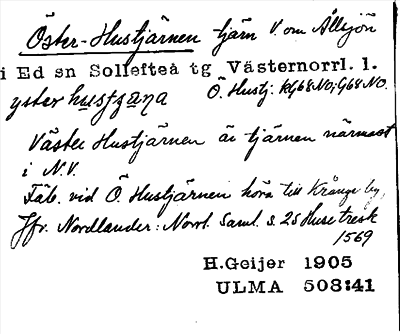 Öster-Hustjärnen tjärn V. om Ållsjön
i Ed sn Sollefteå tg Västernorrl. l.
yster hus̲tʒa̲ŋa Ö. Hustj: RG68NO; G68NO.
Väster Hustjärnen är tjärnen närmast
i N.V.
Fäb. vid Ö. Hustjärnen höra till Krånge by,
Jfr. Nordlander: Norrl. Saml. s. 25 Huse tresk
1569
H.Geijer 1905
ULMA 508:41